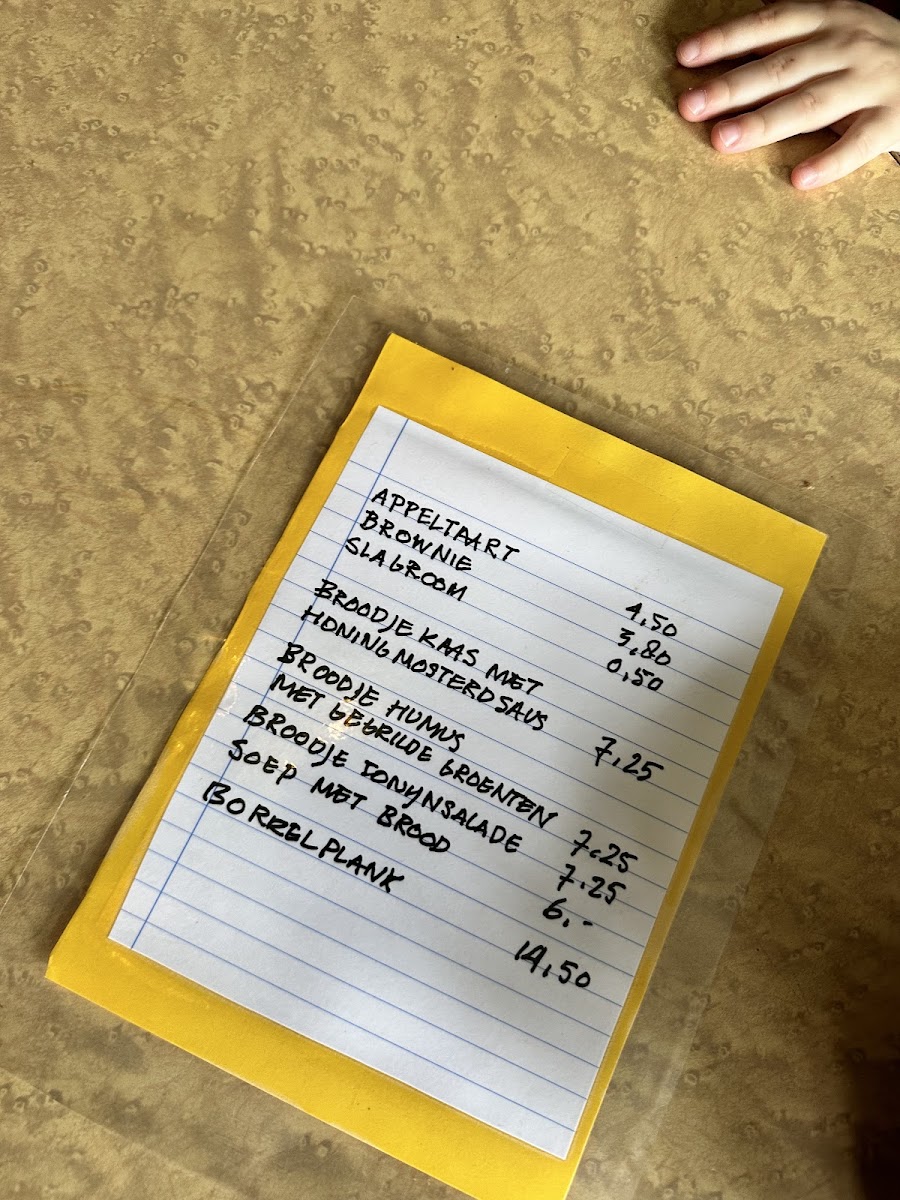 APPELTAART 4,50
BROWNIE 3,80
SLAGROOM 0,50
BROODJE KAAS MET
HONING MOSTERD SAUS 7,25
BROODJE HUMUS
MET GEGRILDE GROENTEN 7.25
BROODJE TONYNSALADE 7.25
SOEP MET BROOD 6,-
BORRELPLANK 14,50